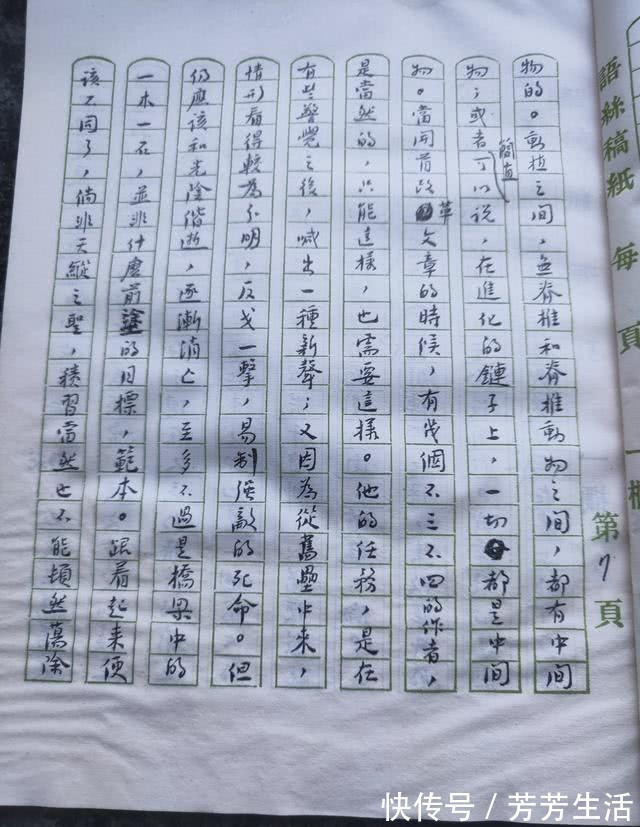 語絲稿紙 每頁一
第7頁
物的。動植之間，無脊椎和脊椎動物之間，都有中間
物；或者簡直可以说，在進化的鏈子上，一切都是中間
物。當開首改革文章的時候，有幾個不三不四的作者，
是當然的，只能這樣，也需要這樣。他的任務，是在
有些警覺之後，喊出一種新聲；又因為從舊壘中来，
情形看得較為分明，反戈一擊，易制強敵的死命。但
仍應該和光陰偕逝，逐漸消亡，至多不過是橋梁中的
一木一石，並非什麼前途的目標，範本。跟着起来便
該不同了，倘非天縱之聖，積習當然也不能頓然蕩除
快传号 / 芳芳生活